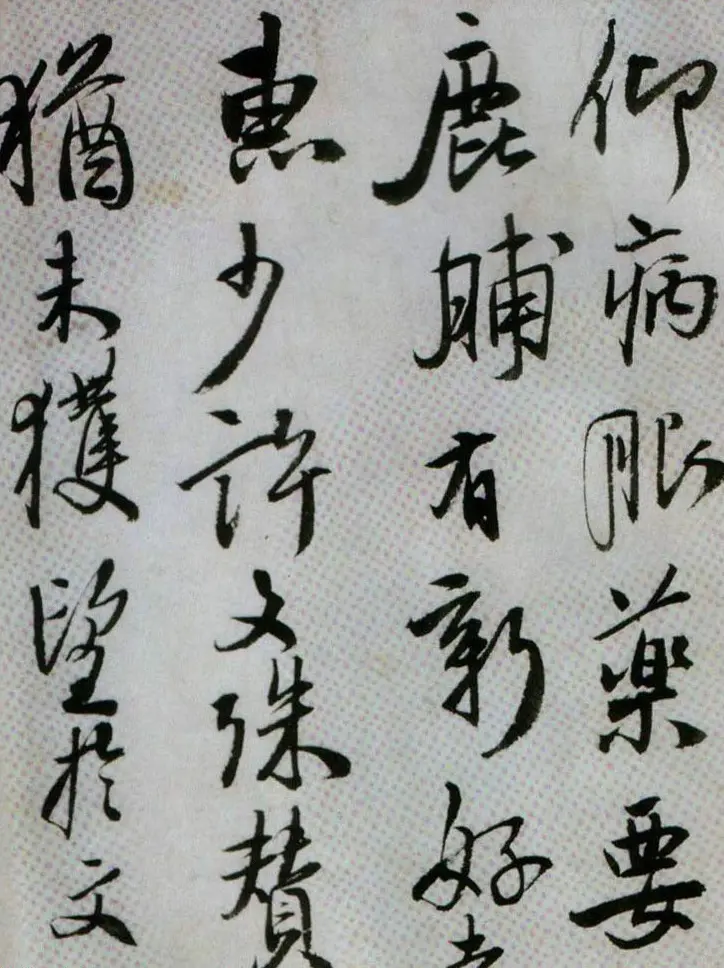 仰病服薬要
鹿脯有新好
惠少許文殊賛
猶未獲望於文